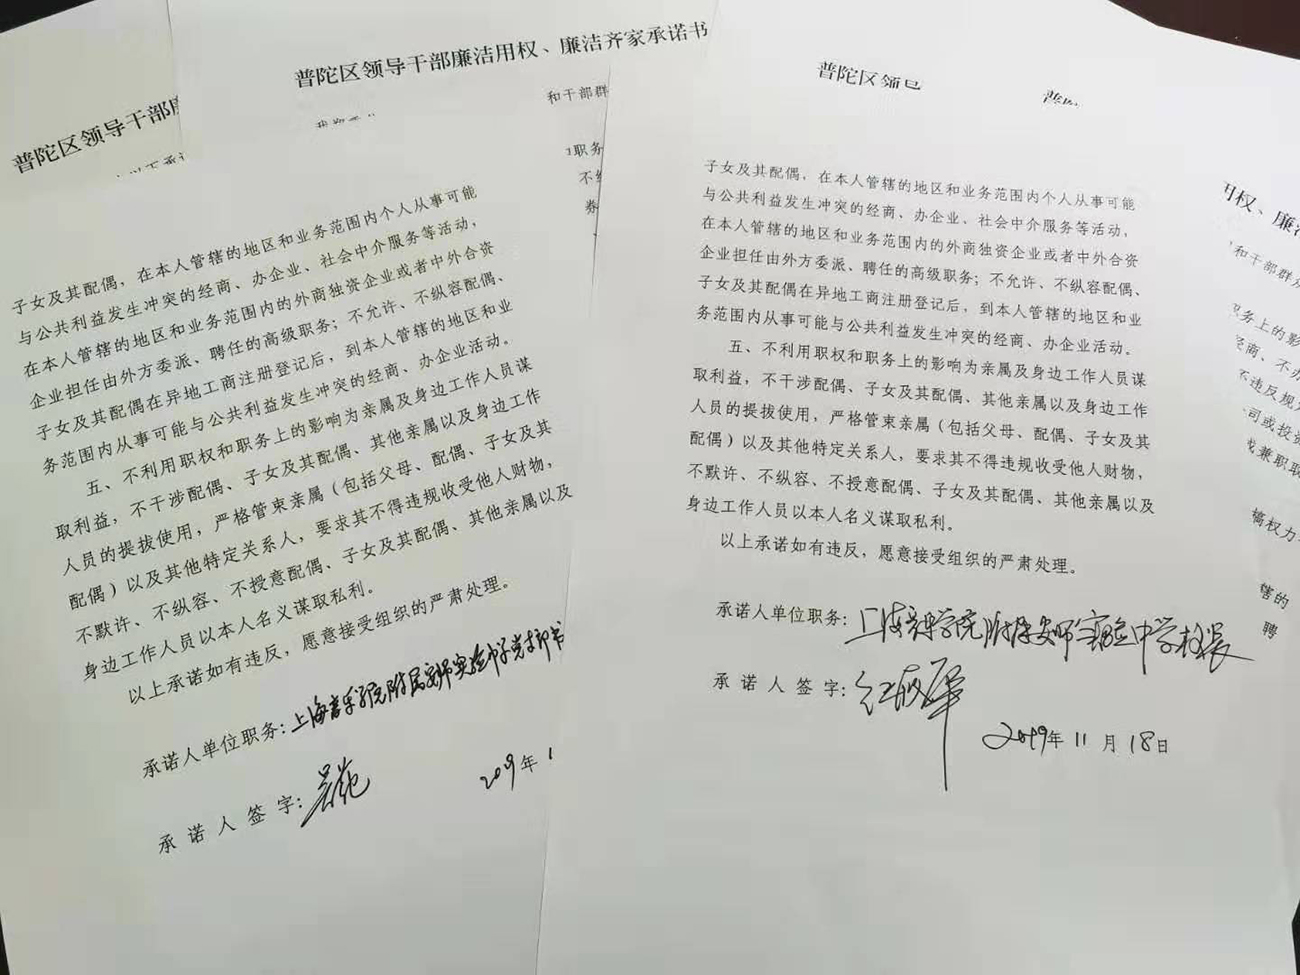 普陀区领导干部廉
普陀区领导干部廉洁用权、廉洁齐家承诺书
和干部群
职务
子女及其配偶，在本人管辖的地区和业务范围内个人从事可能
与公共利益发生冲突的经商、办企业、社会中介服务等活动，
在本人管辖的地区和业务范围内的外商独资企业或者中外合资
企业担任由外方委派、聘任的高级职务；不允许、不纵容配偶、
子女及其配偶在异地工商注册登记后，到本人管辖的地区和业
务范围内从事可能与公共利益发生冲突的经商、办企业活动。
五、不利用职权和职务上的影响为亲属及身边工作人员谋
取利益，不干涉配偶、子女及其配偶、其他亲属以及身边工作
人员的提拔使用，严格管束亲属（包括父母、配偶、子女及其
配偶）以及其他特定关系人，要求其不得违规收受他人财物，
不默许、不纵容、不授意配偶、子女及其配偶、其他亲属以及
身边工作人员以本人名义谋取私利。
以上承诺如有违反，愿意接受组织的严肃处理。
承诺人单位职务：上海音乐学院附属安师实验中学党支部书
承诺人签字：
2019年1
普陀区领导
子女及其配偶，在本人管辖的地区和业务范围内个人从事可能
与公共利益发生冲突的经商、办企业、社会中介服务等活动，
在本人管辖的地区和业务范围内的外商独资企业或者中外合资
企业担任由外方委派、聘任的高级职务；不允许、不纵容配偶、
子女及其配偶在异地工商注册登记后，到本人管辖的地区和业
务范围内从事可能与公共利益发生冲突的经商、办企业活动。
五、不利用职权和职务上的影响为亲属及身边工作人员谋
取利益，不干涉配偶、子女及其配偶、其他亲属以及身边工作
人员的提拔使用，严格管束亲属（包括父母、配偶、子女及其
配偶）以及其他特定关系人，要求其不得违规收受他人财物，
不默许、不纵容、不授意配偶、子女及其配偶、其他亲属以及
身边工作人员以本人名义谋取私利。
以上承诺如有违反，愿意接受组织的严肃处理。
承诺人单位职务：上海音乐学院附属安师实验中学校长
承诺人签字：
2019年11月18日
用权、廉洁
和干部群众
职务上的影
经商、不办
不违反规定
司或投资
或兼职取
权力
辖的
聘